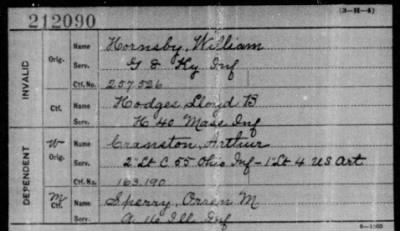 (3-H-4)
212090
INVALID
Orig.
Name Hornsby, William
Serv. G 8 Ky Inf
Ctf. No. 257526
Ctf.
Name Hodges Lloyd B
Serv. H 40 Mass Inf
DEPENDENT
W Orig.
Name Cranston, Arthur
Serv. 2" Lt C 55 Ohio Inf - 1" Lt 4 US Art
Ctf. No. 163.190
Ctf.
Name Sperry, Orren M
Serv. a. Ill Inf